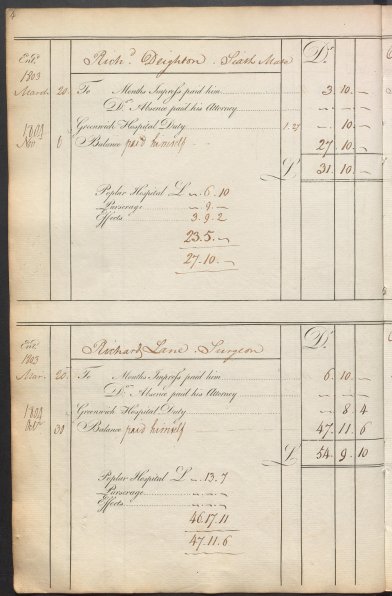 4
Entd. Richd. Deighton . Sixth Mate Dr.
1803
March 20 To Months Imprest paid him 3 10 –
Do. Absence paid his Attorney – – –
Greenwich Hospital Duty – 10 –
1804
Novr. 6 Balance paid himself 27 10 –
£ 31 10 –
Poplar Hospital £ – . 6 . 10
Parserage – . 9 . –
Effects 3 . 9 . 2
23 . 5 . –
27 . 10 . –
Entd. Richard Lane . Surgeon Dr.
1803
Mar. 20 To Months Imprest paid him 6 10 –
Do. Absence paid his Attorney – – –
Greenwich Hospital Duty – 8 4
1804
30 Balance paid himself 47 11 6
£ 54 9 10
Poplar Hospital £ – . 13 . 7
Parserage – – –
Effects – – –
46 17 11
47 . 11 . 6